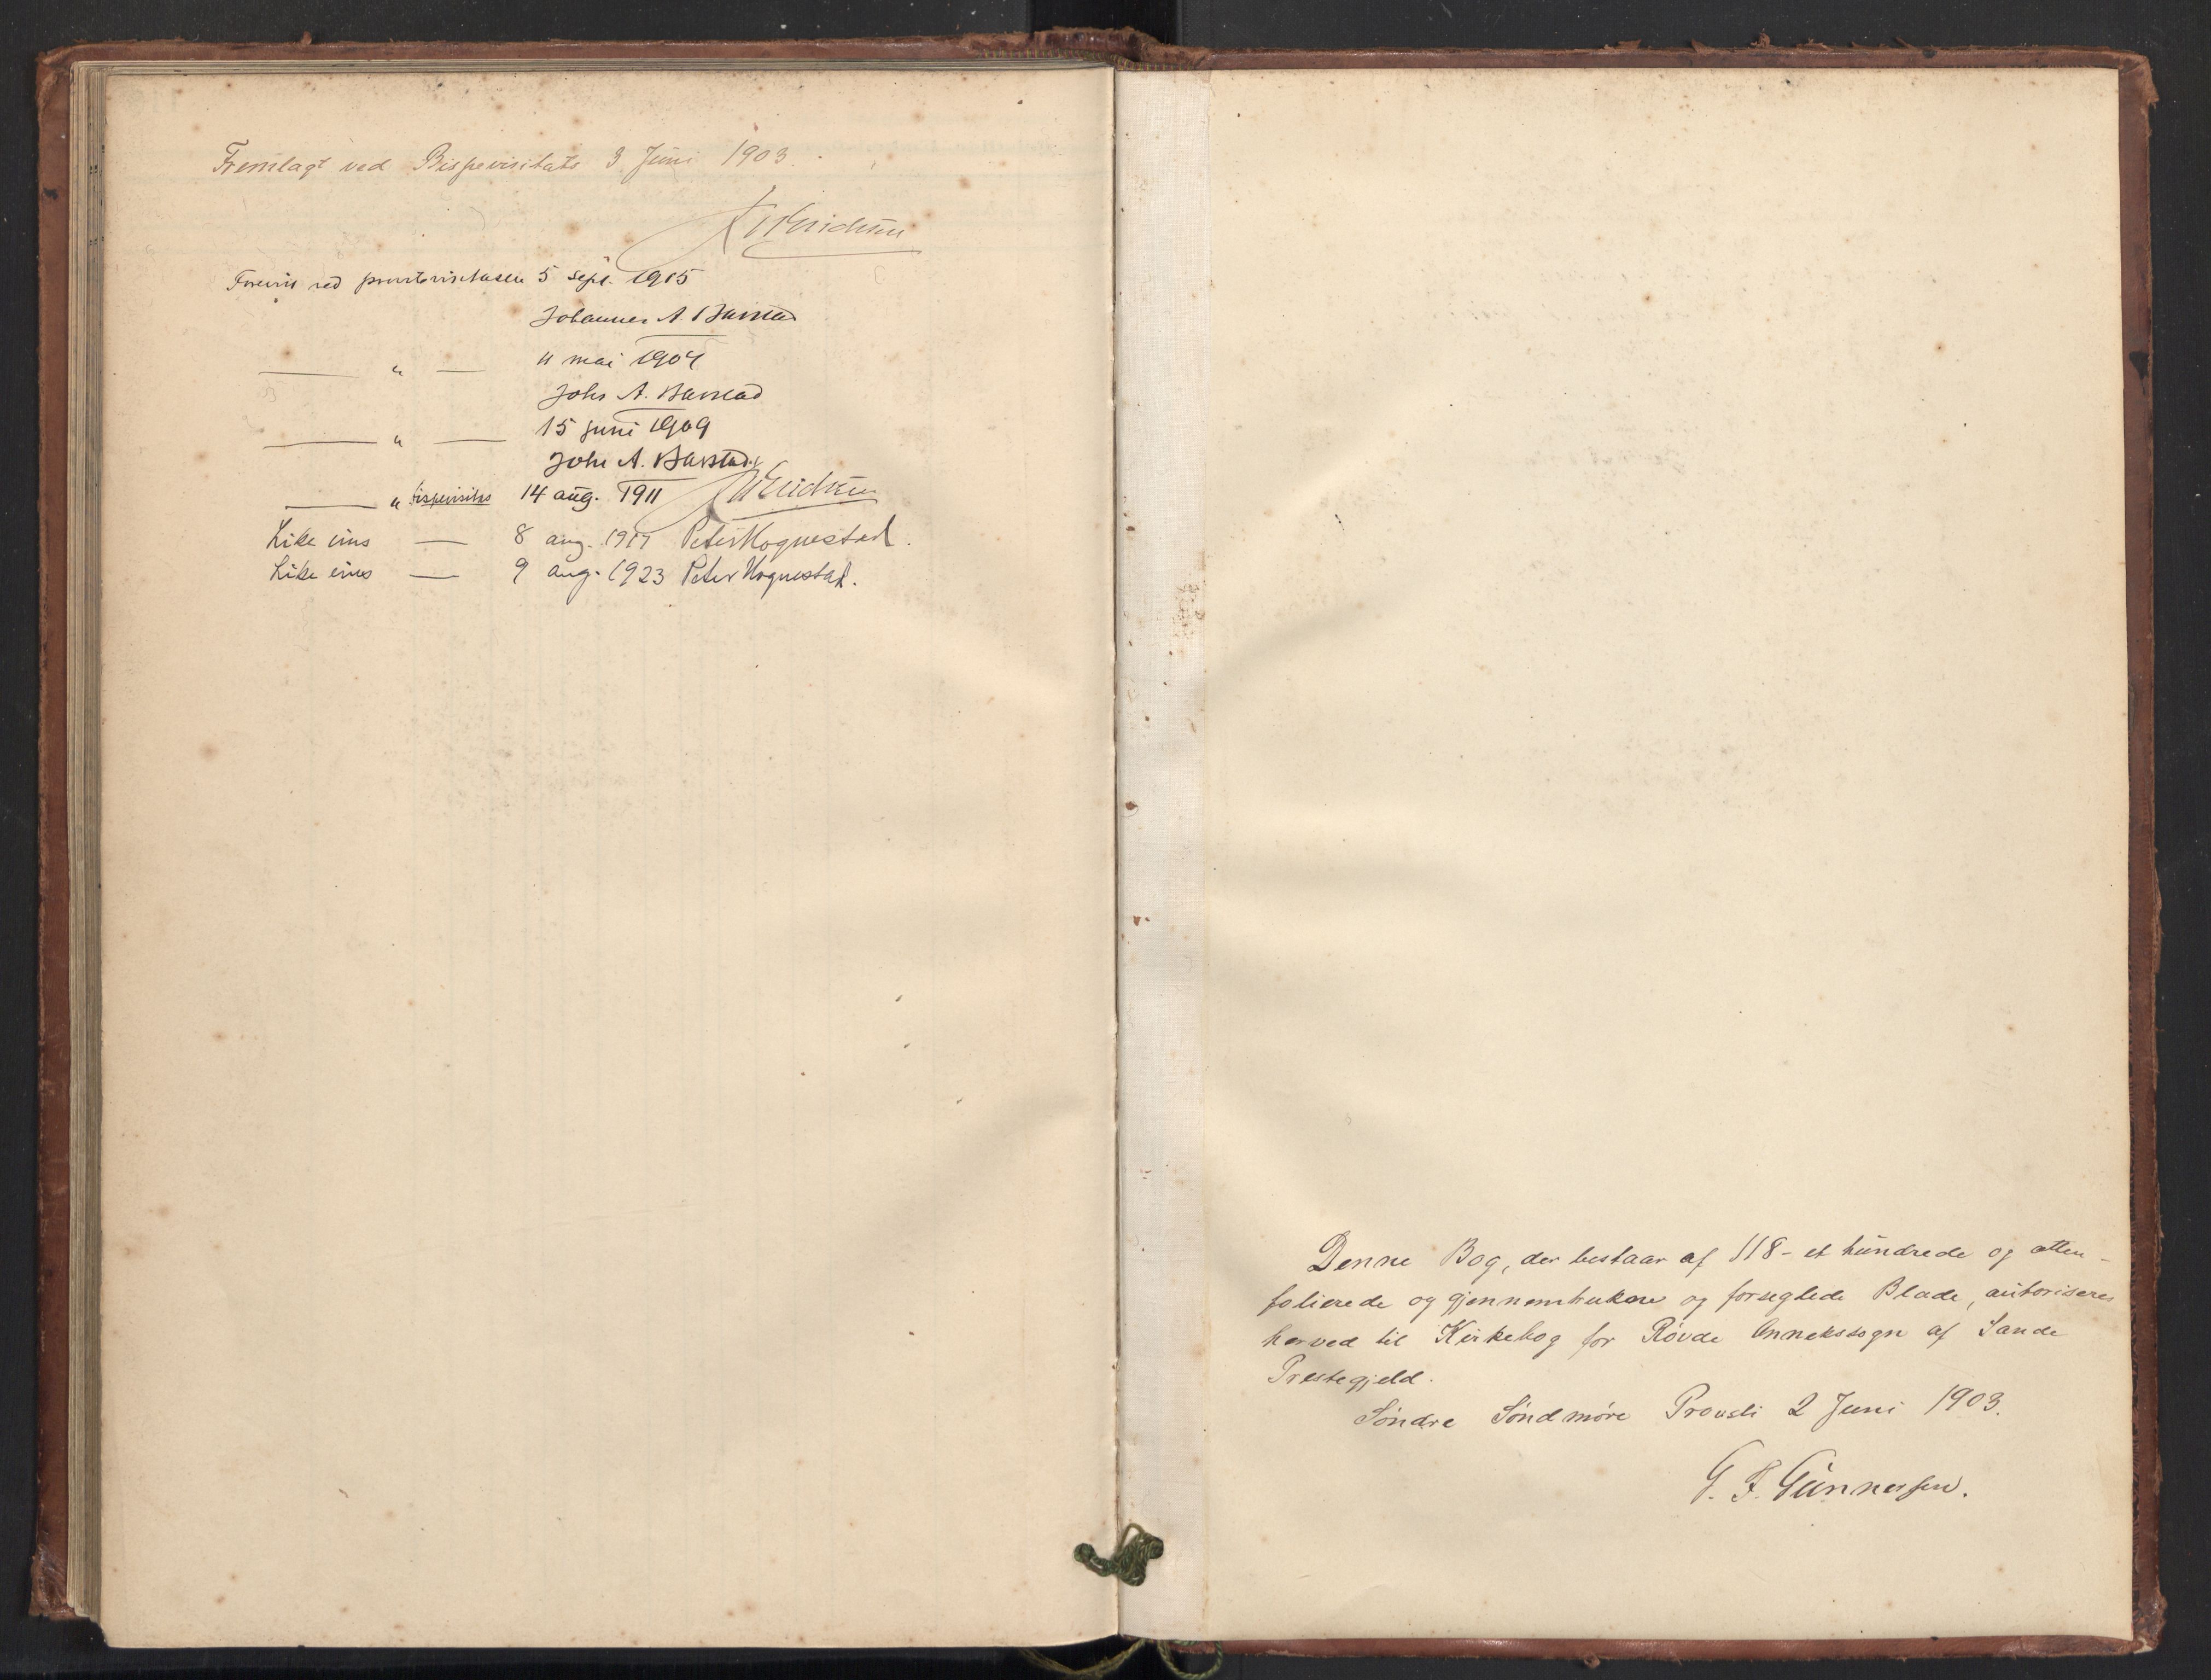 Fremlagt ved Bispevisitats 3 Juni 1903.
Erichsen
ved 5 sept. 1905
Johannes A. Barstad
— " — 11 mai 1907
Johs A. Barstad
— " — 15 juni 1909
Johs A. Barstad
— " bispevisitas 14 aug. 1911 Erichsen
Like eins — 8 aug. 1917 Peter Hognestad.
Like eins — 9 aug. 1923 Peter Hognestad.
Denne Bog, der bestaar af 118 - et hundrede og atten -
folierede og gjennemtrukne og forseglede Blade, autoriseres
herved til Kirkebog for Røvde Annekssogn af Sande
Prestegjeld.
Søndre Søndmøre Provsti 2 Juni 1903.
G. F. Gunnersen.